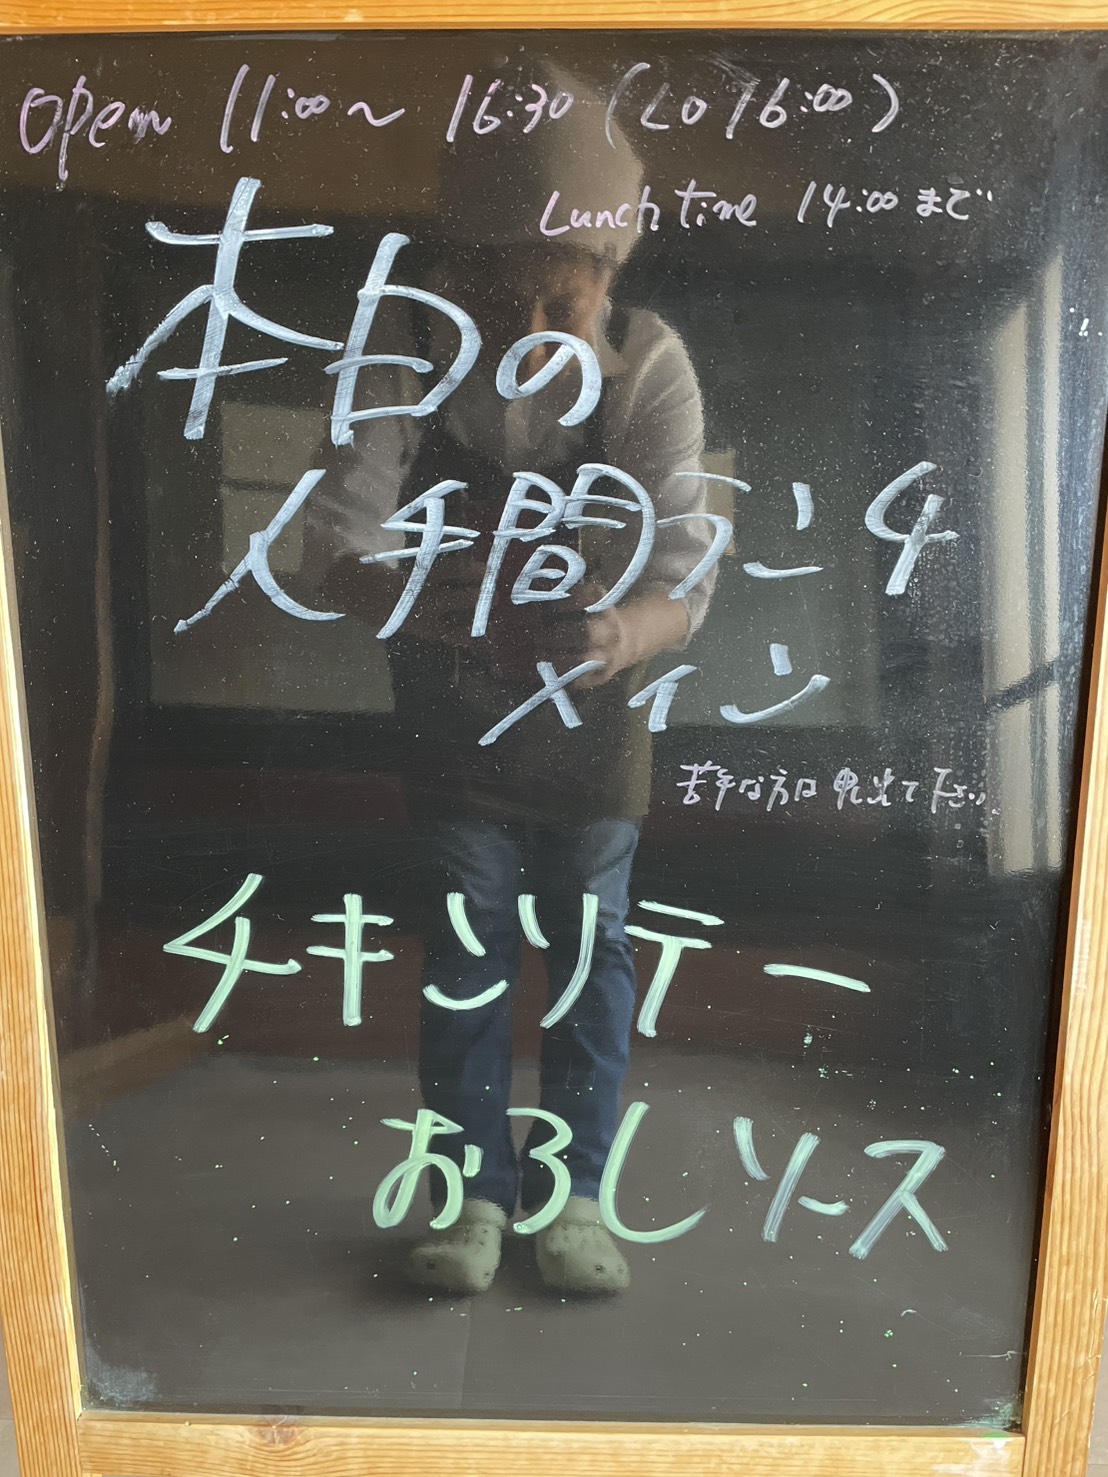 open 11:00～16:30 (LO 16:00)
Lunch time 14:00 まで
本日の
人手間ランチ
メイン
苦手な方は申出て下さい。
チキンソテー
おろしソース